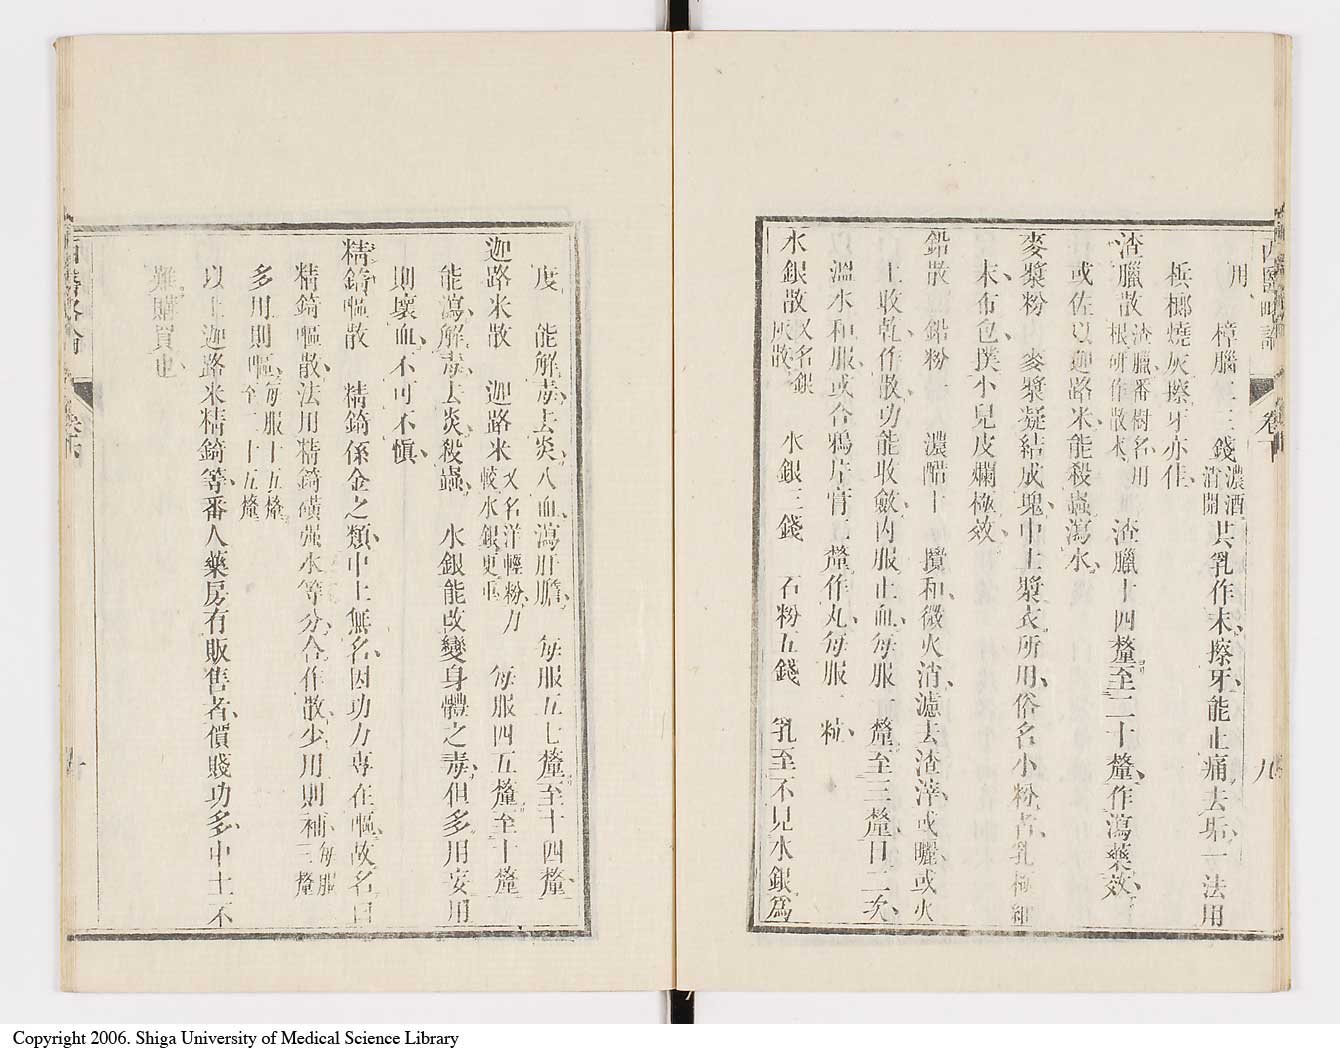 西醫略論
卷下
九
用　樟腦二三錢濃酒消開共乳作末擦牙能止痛去垢一法用
梹榔燒灰擦牙亦佳
渣臘散渣臘番樹名用根研作散末　渣臘十四釐至二十釐作瀉藥效
或佐以迦路米能殺蟲瀉水
麥漿粉　麥漿凝結成塊中土漿衣所用俗名小粉者乳極細
末布包撲小兒皮爛極效
鉛散　鉛粉一　濃醋十　攪和微火消濾去渣滓或曬或火
上收乾作散功能收斂內服止血每服一釐至三釐日二次
溫水和服或合鴉片膏二釐作丸每服一粒
水銀散又名銀灰散　水銀三錢　石粉五錢　乳至不見水銀爲
度　能解毒去炎入血瀉肝膽　每服五七釐至十四釐
迦路米散　迦路米又名洋輕粉力較水銀更重　每服四五釐至十釐
能瀉解毒去炎殺蟲　水銀能改變身體之毒但多用妄用
則壞血不可不慎
精錡嘔散　精錡係金之類中土無名因功力專在嘔故名曰
精錡嘔散法用精錡磺强水等分合作散少用則補每服三釐
多用則嘔每服十五釐至二十五釐
以上迦路米精錡等番人藥房有販售者價賤功多中土不
難購買也
西醫略論
卷下
十
Copyright 2006. Shiga University of Medical Science Library